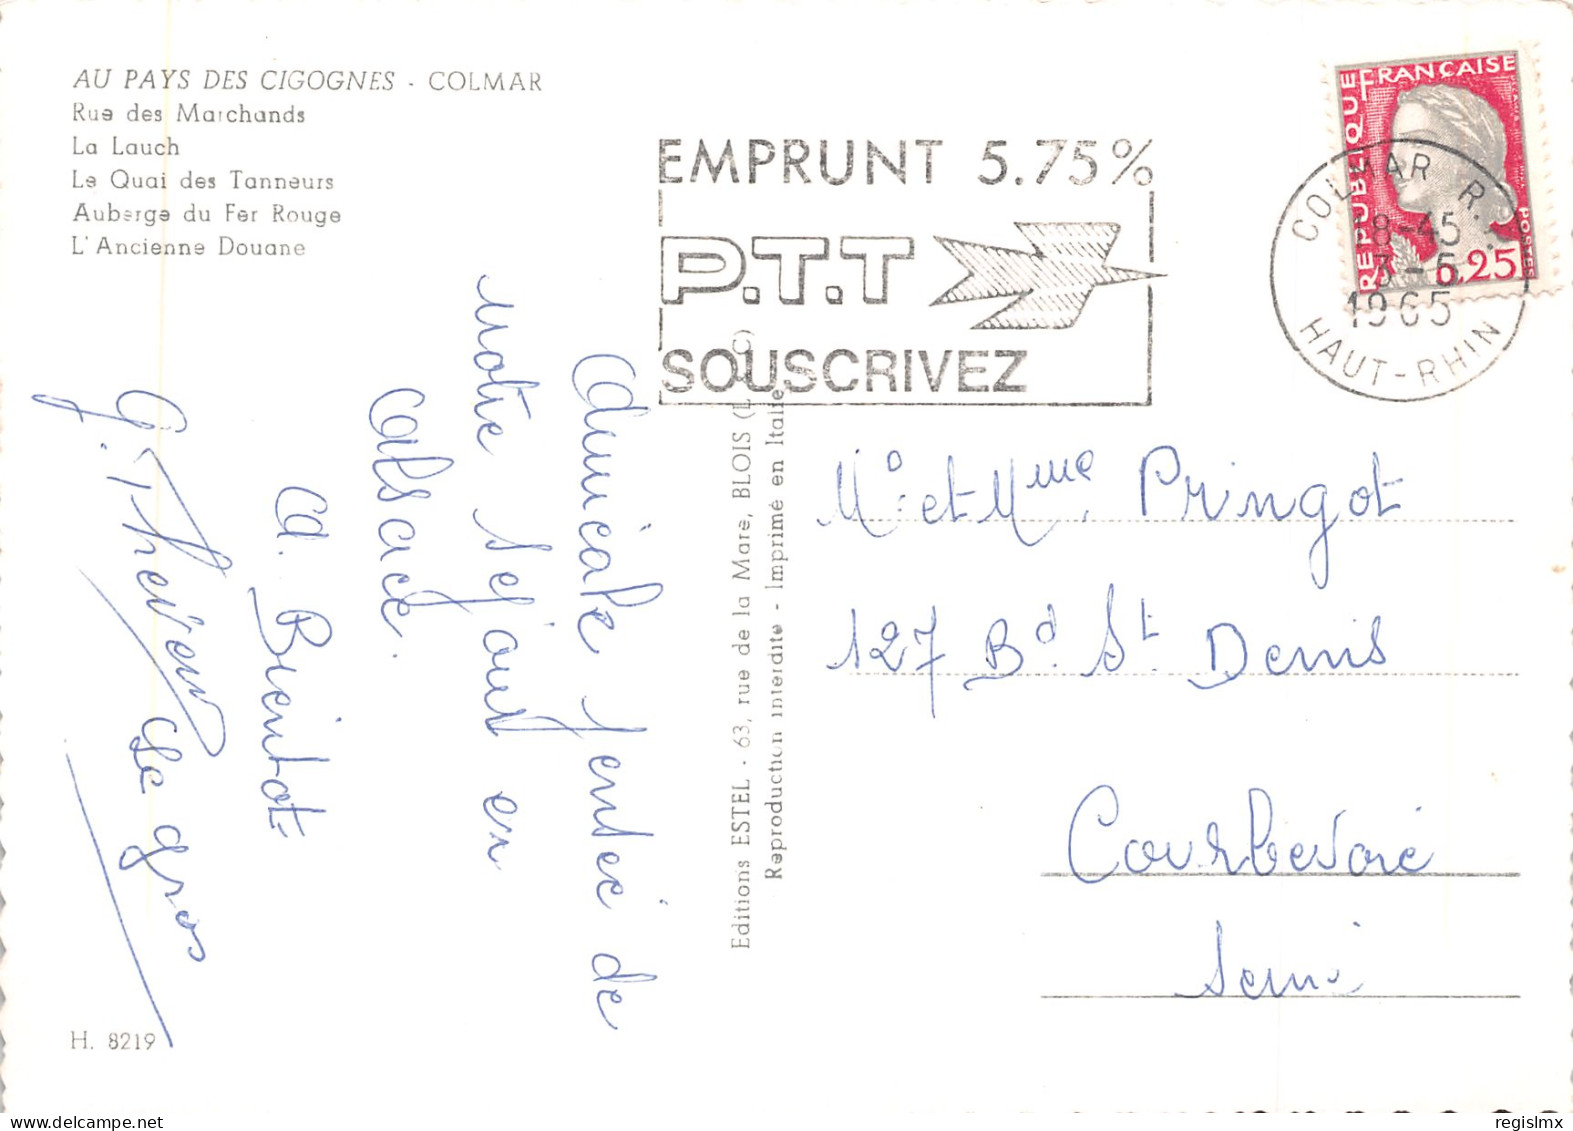 AU PAYS DES CIGOGNES - COLMAR
Rue des Marchands
La Lauch
Le Quai des Tanneurs
Auberge du Fer Rouge
L'Ancienne Douane
EMPRUNT 5.75%
P.T.T
SOUSCRIVEZ
REPUBLIQUE FRANÇAISE
POSTES
0,25
COLMAR R.P.
18-45
3-6
1965
HAUT-RHIN
Amicale pensée de
notre séjour en
Alsace.
A Bientot
G. Thevenin
Le gros
Editions ESTEL - 63, rue de la Mare, BLOIS (L.-&-C)
Reproduction interdite - Imprimé en Italie
Mr et Mme Pringot
127 Bd St Denis
Courbevoie
Seine
H. 8219
regislmx